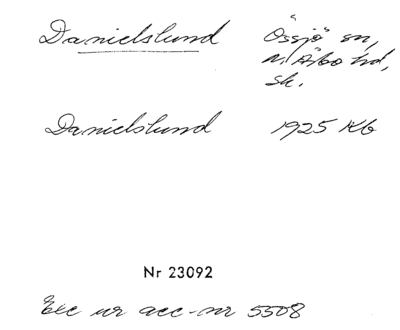 Danielslund "Össjö" sn,
N. Åsbo hd,
Sk.
Danielslund 1925 Kb
Nr 23092
Exc ur acc-nr 5508